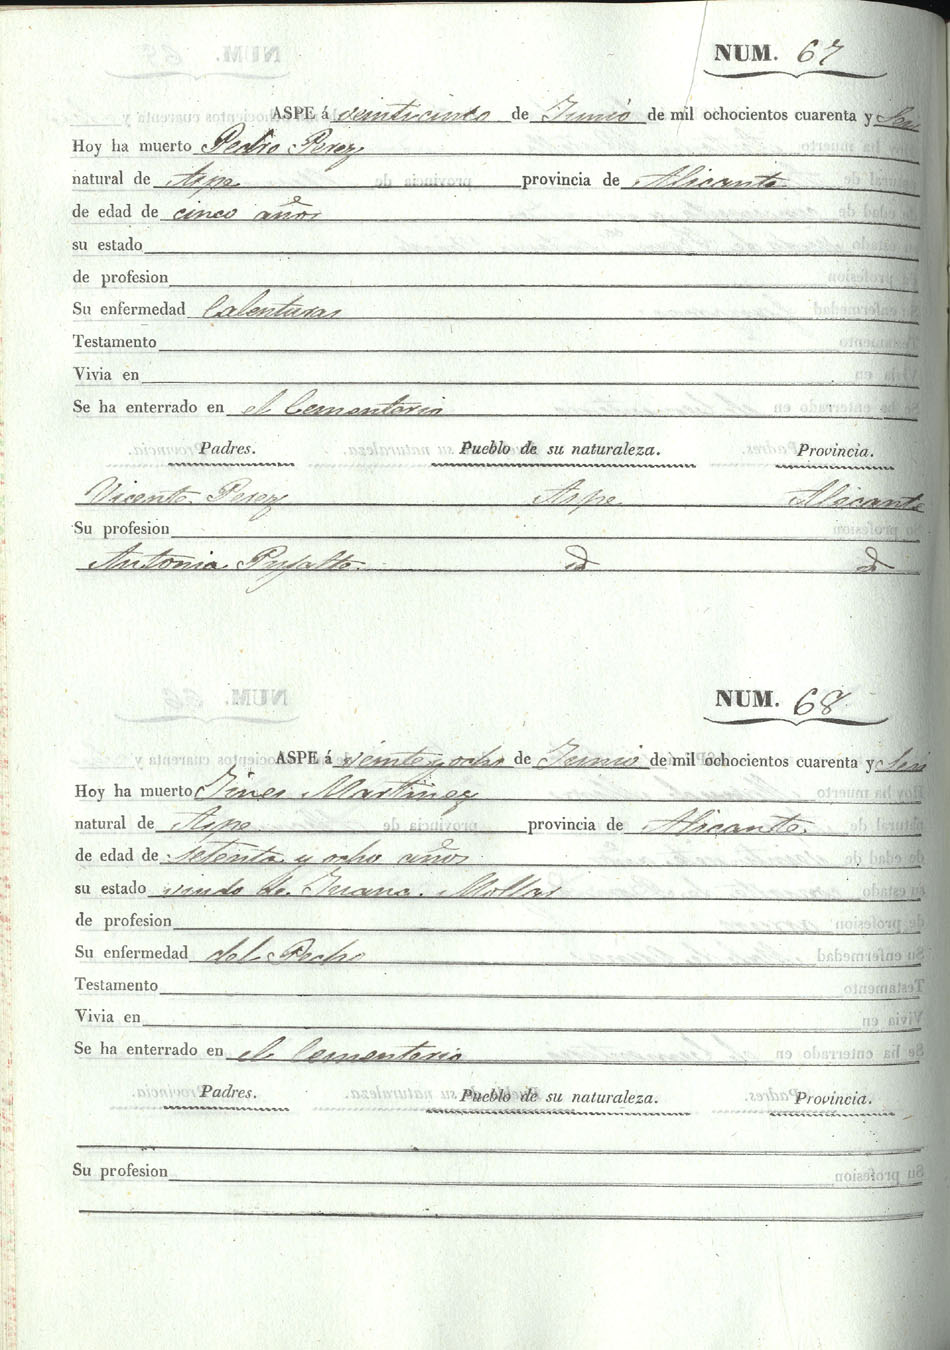 NUM. 67
ASPE á veinticinco de Junio de mil ochocientos cuarenta y Seis
Hoy ha muerto Pedro Perez
natural de Aspe provincia de Alicante
de edad de cinco años
su estado
de profesion
Su enfermedad Calenturas
Testamento
Vivia en
Se ha enterrado en el Cementerio
Padres. Pueblo de su naturaleza. Provincia.
Vicente Perez Aspe Alicante
Su profesion
Antonia Pujalte id id
NUM. 68
ASPE á veinte y ocho de Junio de mil ochocientos cuarenta y Seis
Hoy ha muerto Gines Martinez
natural de Aspe provincia de Alicante
de edad de setenta y ocho años
su estado viudo de Juana Mollar
de profesion
Su enfermedad del Pecho
Testamento
Vivia en
Se ha enterrado en el Cementerio
Padres. Pueblo de su naturaleza. Provincia.
Su profesion